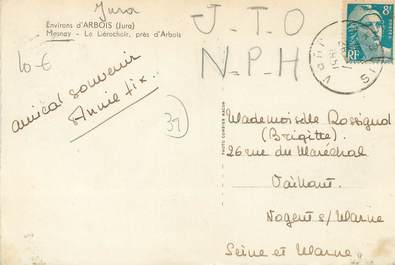 Jura
Environs d'ARBOIS (Jura)
Mesnay - Le Liérochoir, près d'Arbois
10 €
J-T-O
N-P-H
8F
RF
amical souvenir
Annie Lix..
37
PHOTO COMBIER MACON
Mademoiselle Rossignol
(Brigitte)
26 rue du Maréchal
Vaillant
Nogent s/Marne
Seine et Marne